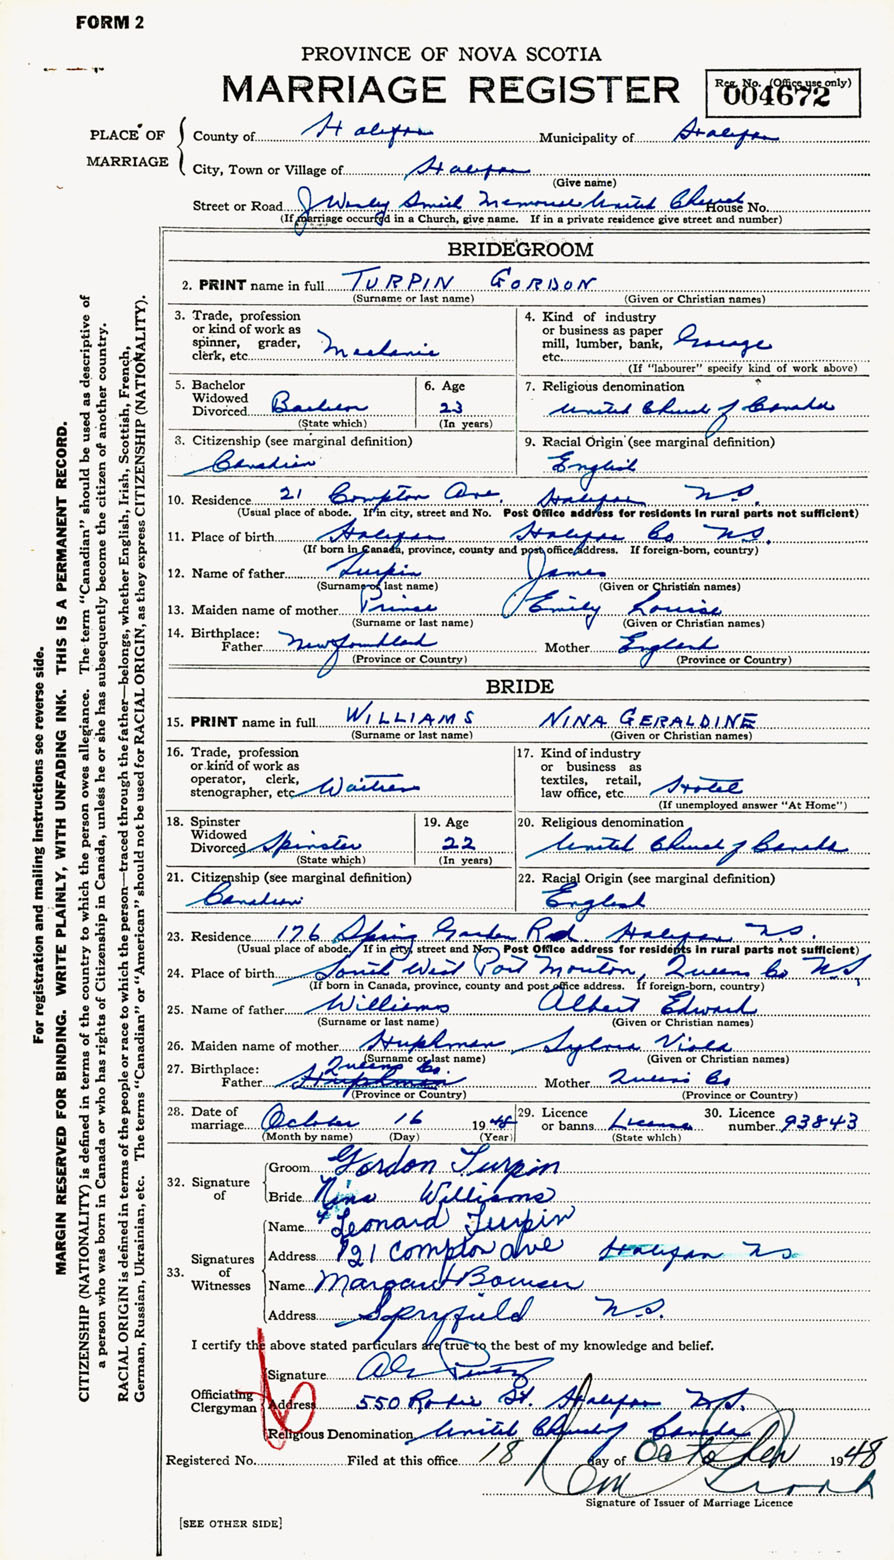 FORM 2
PROVINCE OF NOVA SCOTIA
MARRIAGE REGISTER
Reg. No. (Office use only)
004672
PLACE OF MARRIAGE
County of Halifax Municipality of Halifax
City, Town or Village of Halifax
(Give name)
Street or Road J Wesley Smith Memorial United Church House No.
(If marriage occurred in a Church, give name. If in a private residence give street and number)
BRIDEGROOM
2. PRINT name in full TURPIN GORDON
(Surname or last name) (Given or Christian names)
3. Trade, profession or kind of work as spinner, grader, clerk, etc. Mechanic
4. Kind of industry or business as paper mill, lumber, bank, etc. Garage
(If "labourer" specify kind of work above)
5. Bachelor Widowed Divorced Bachelor
(State which)
6. Age 23
(In years)
7. Religious denomination
United Church of Canada
3. Citizenship (see marginal definition)
Canadian
9. Racial Origin (see marginal definition)
English
10. Residence 21 Compton Ave. Halifax N.S.
(Usual place of abode. If in city, street and No. Post Office address for residents in rural parts not sufficient)
11. Place of birth Halifax Halifax Co N.S.
(If born in Canada, province, county and post office address. If foreign-born, country)
12. Name of father Turpin James
(Surname of last name) (Given or Christian names)
13. Maiden name of mother Prince Emily Louise
(Surname or last name) (Given or Christian names)
14. Birthplace:
Father Newfoundland Mother England
(Province or Country) (Province or Country)
BRIDE
15. PRINT name in full WILLIAMS NINA GERALDINE
(Surname or last name) (Given or Christian names)
16. Trade, profession or kind of work as operator, clerk, stenographer, etc Waitress
17. Kind of industry or business as textiles, retail, law office, etc. Hotel
(If unemployed answer "At Home")
18. Spinster Widowed Divorced Spinster
(State which)
19. Age 22
(In years)
20. Religious denomination
United Church of Canada
21. Citizenship (see marginal definition)
Canadian
22. Racial Origin (see marginal definition)
English
23. Residence 176 Spring Garden Rd. Halifax N.S.
(Usual place of abode. If in city, street and No. Post Office address for residents in rural parts not sufficient)
24. Place of birth South West Port Mouton, Queens Co N.S,
(If born in Canada, province, county and post office address. If foreign-born, country)
25. Name of father Williams Albert Edward
(Surname or last name) (Given or Christian names)
26. Maiden name of mother Huphman Sylvia Viola
(Surname or last name) (Given or Christian names)
27. Birthplace: Queens Co.
Father Huphman Mother Queens Co
(Province or Country) (Province or Country)
28. Date of marriage October 16 1948
(Month by name) (Day) (Year)
29. Licence or banns License
(State which)
30. Licence number 93843
32. Signature of
Groom Gordon Turpin
Bride Nina Williams
33. Signatures of Witnesses
Name Leonard Turpin
Address 21 Compton Ave Halifax NS
Name Margaret Bowser
Address Spryfield N.S.
I certify the above stated particulars are true to the best of my knowledge and belief.
Officiating Clergyman
Signature
Address 550 St. Halifax N.S.
Religious Denomination United Church of Canada
Registered No. Filed at this office 18 day of October 1948
Signature of Issuer of Marriage Licence
[SEE OTHER SIDE]
For registration and mailing instructions see reverse side.
MARGIN RESERVED FOR BINDING. WRITE PLAINLY, WITH UNFADING INK. THIS IS A PERMANENT RECORD.
CITIZENSHIP (NATIONALITY) is defined in terms of the country to which the person owes allegiance. The term "Canadian" should be used as descriptive of
a person who was born in Canada or who has rights of Citizenship in Canada, unless he or she has subsequently become the citizen of another country.
RACIAL ORIGIN is defined in terms of the people or race to which the person—traced through the father—belongs, whether English, Irish, Scottish, French,
German, Russian, Ukrainian, etc. The terms "Canadian" or "American" should not be used for RACIAL ORIGIN, as they express CITIZENSHIP (NATIONALITY).